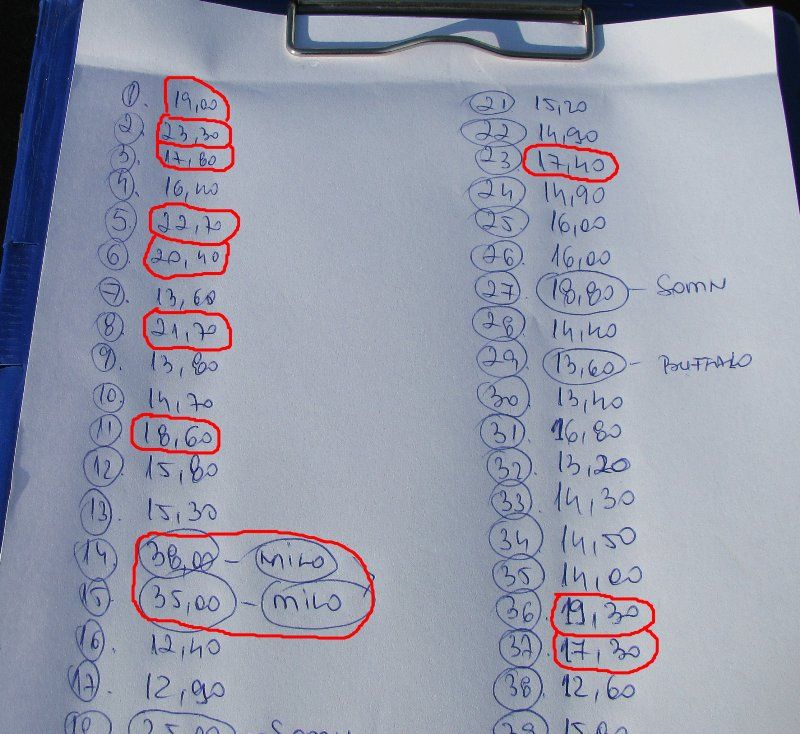 1. 19,00
2. 23,30
3. 17,80
4. 16,40
5 22,70
6 20,40
7. 13,60
8. 21,70
9. 13,80
10. 14,70
11 18,60
12. 15,80
13. 15,30
14. 38,00 - MILO
15. 35,00 - MILO
16. 12,40
17. 12,90
18 25,00 - SOMN
21 15,20
22 14,90
23 17,40
24 14,90
25 16,00
26 16,00
27 18,80 - SOMN
28 14,40
29 13,60 - BUFFALO
30 13,40
31. 16,80
32. 13,20
33. 14,30
34 14,50
35 14,00
36. 19,30
37. 17,30
38. 12,60